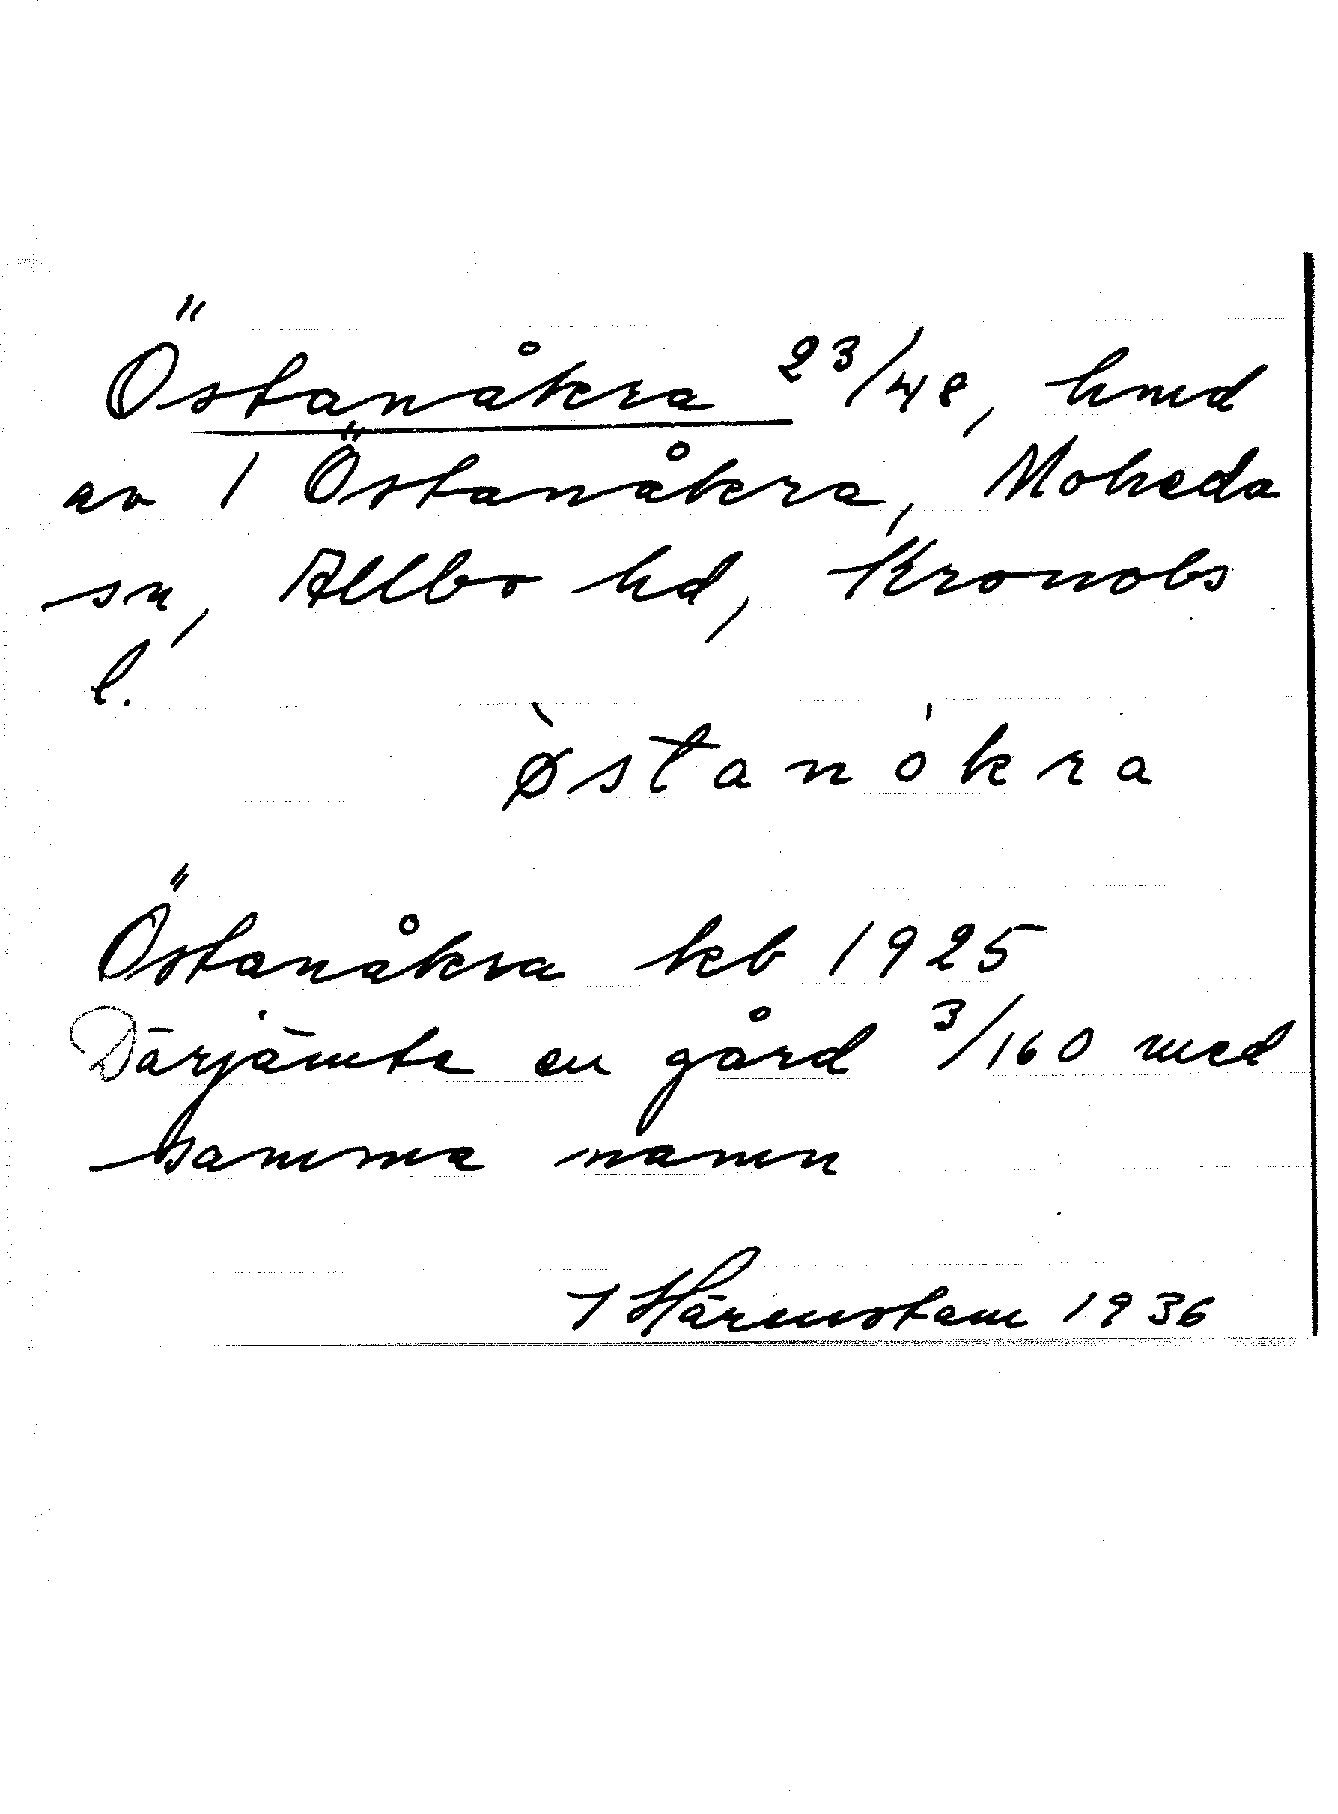 Östanåkra 23/48, hmd
av 1 Östanåkra, Moheda
sn, Allbo hd, Kronobs
l.
ø̀stanòkra
Östanåkra kb 1925
Därjämte en gård 3/160 med
samma namn
I Härenstam 1936